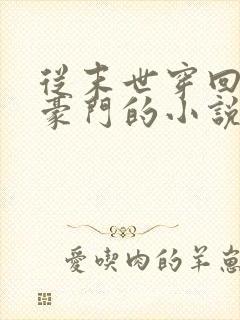 從末世穿回
豪門的小說
愛喫肉的羊崽